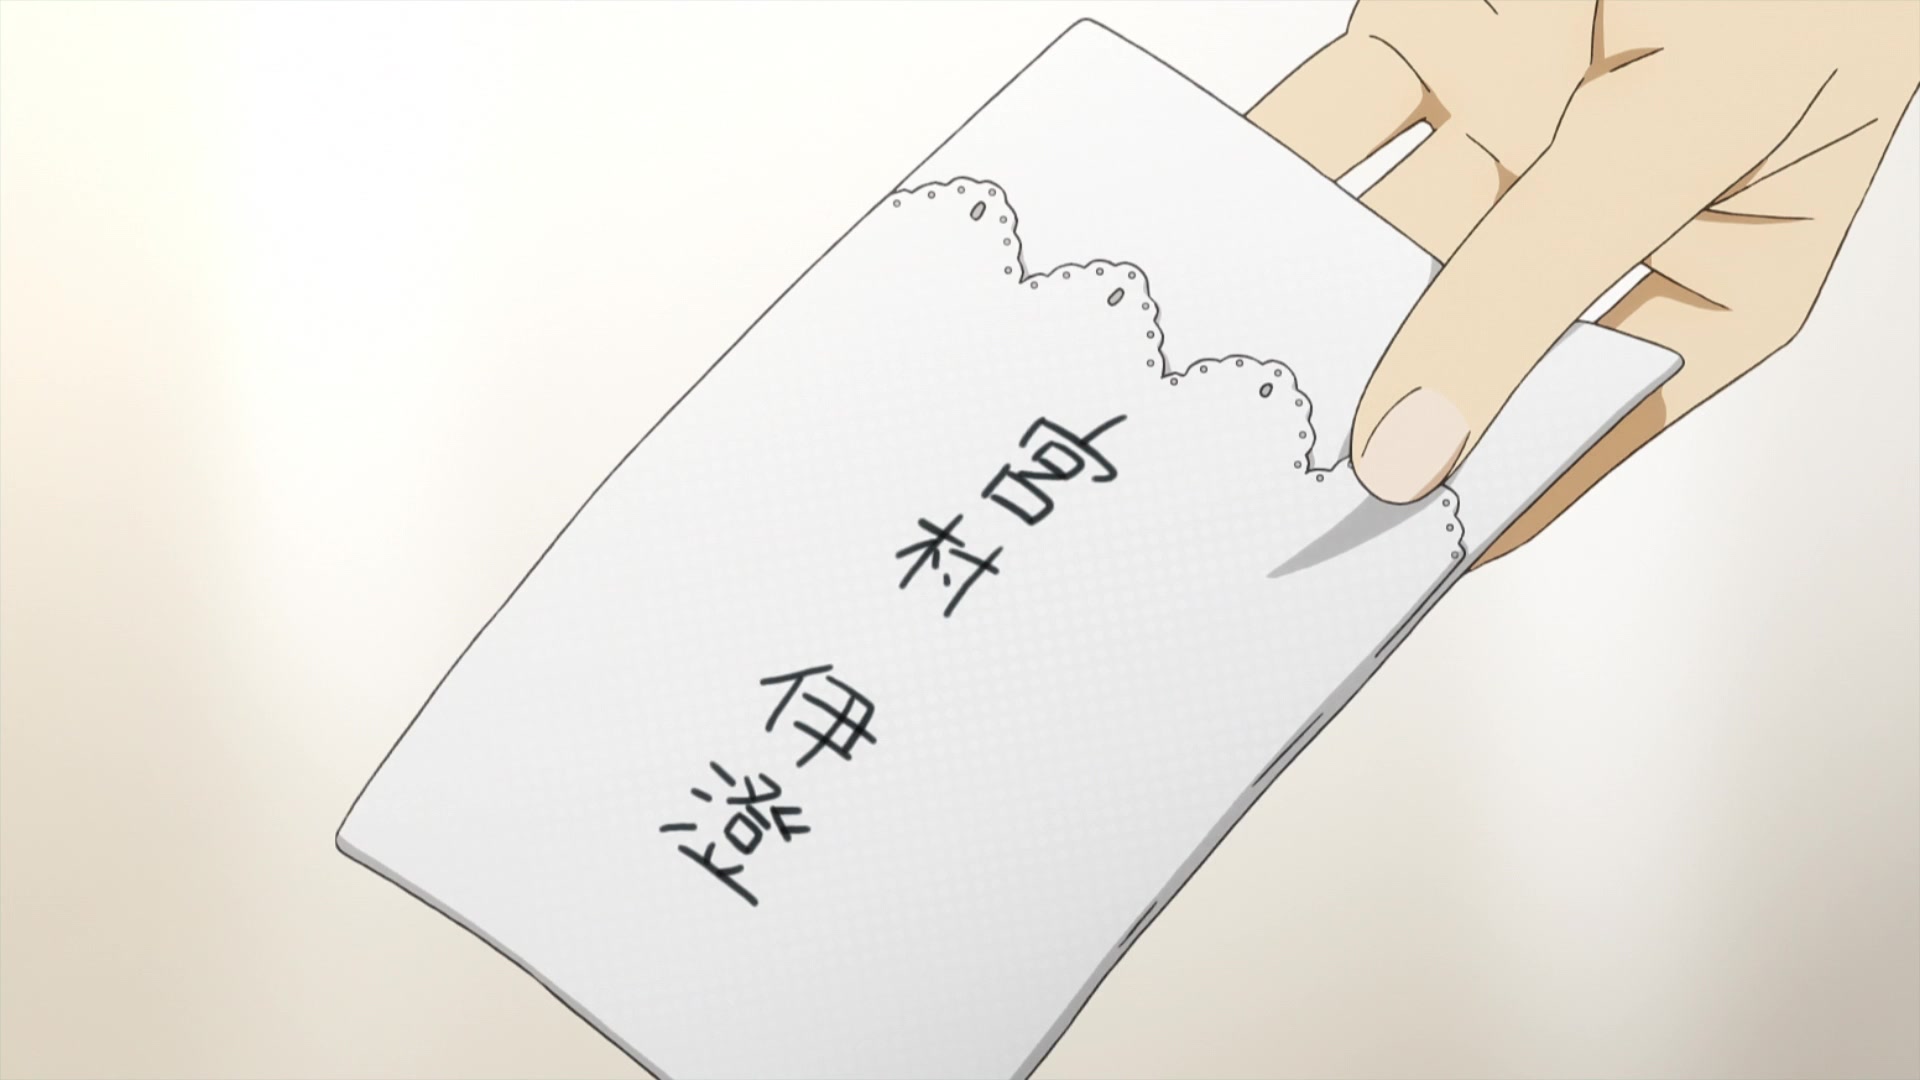 宮村 伊澄